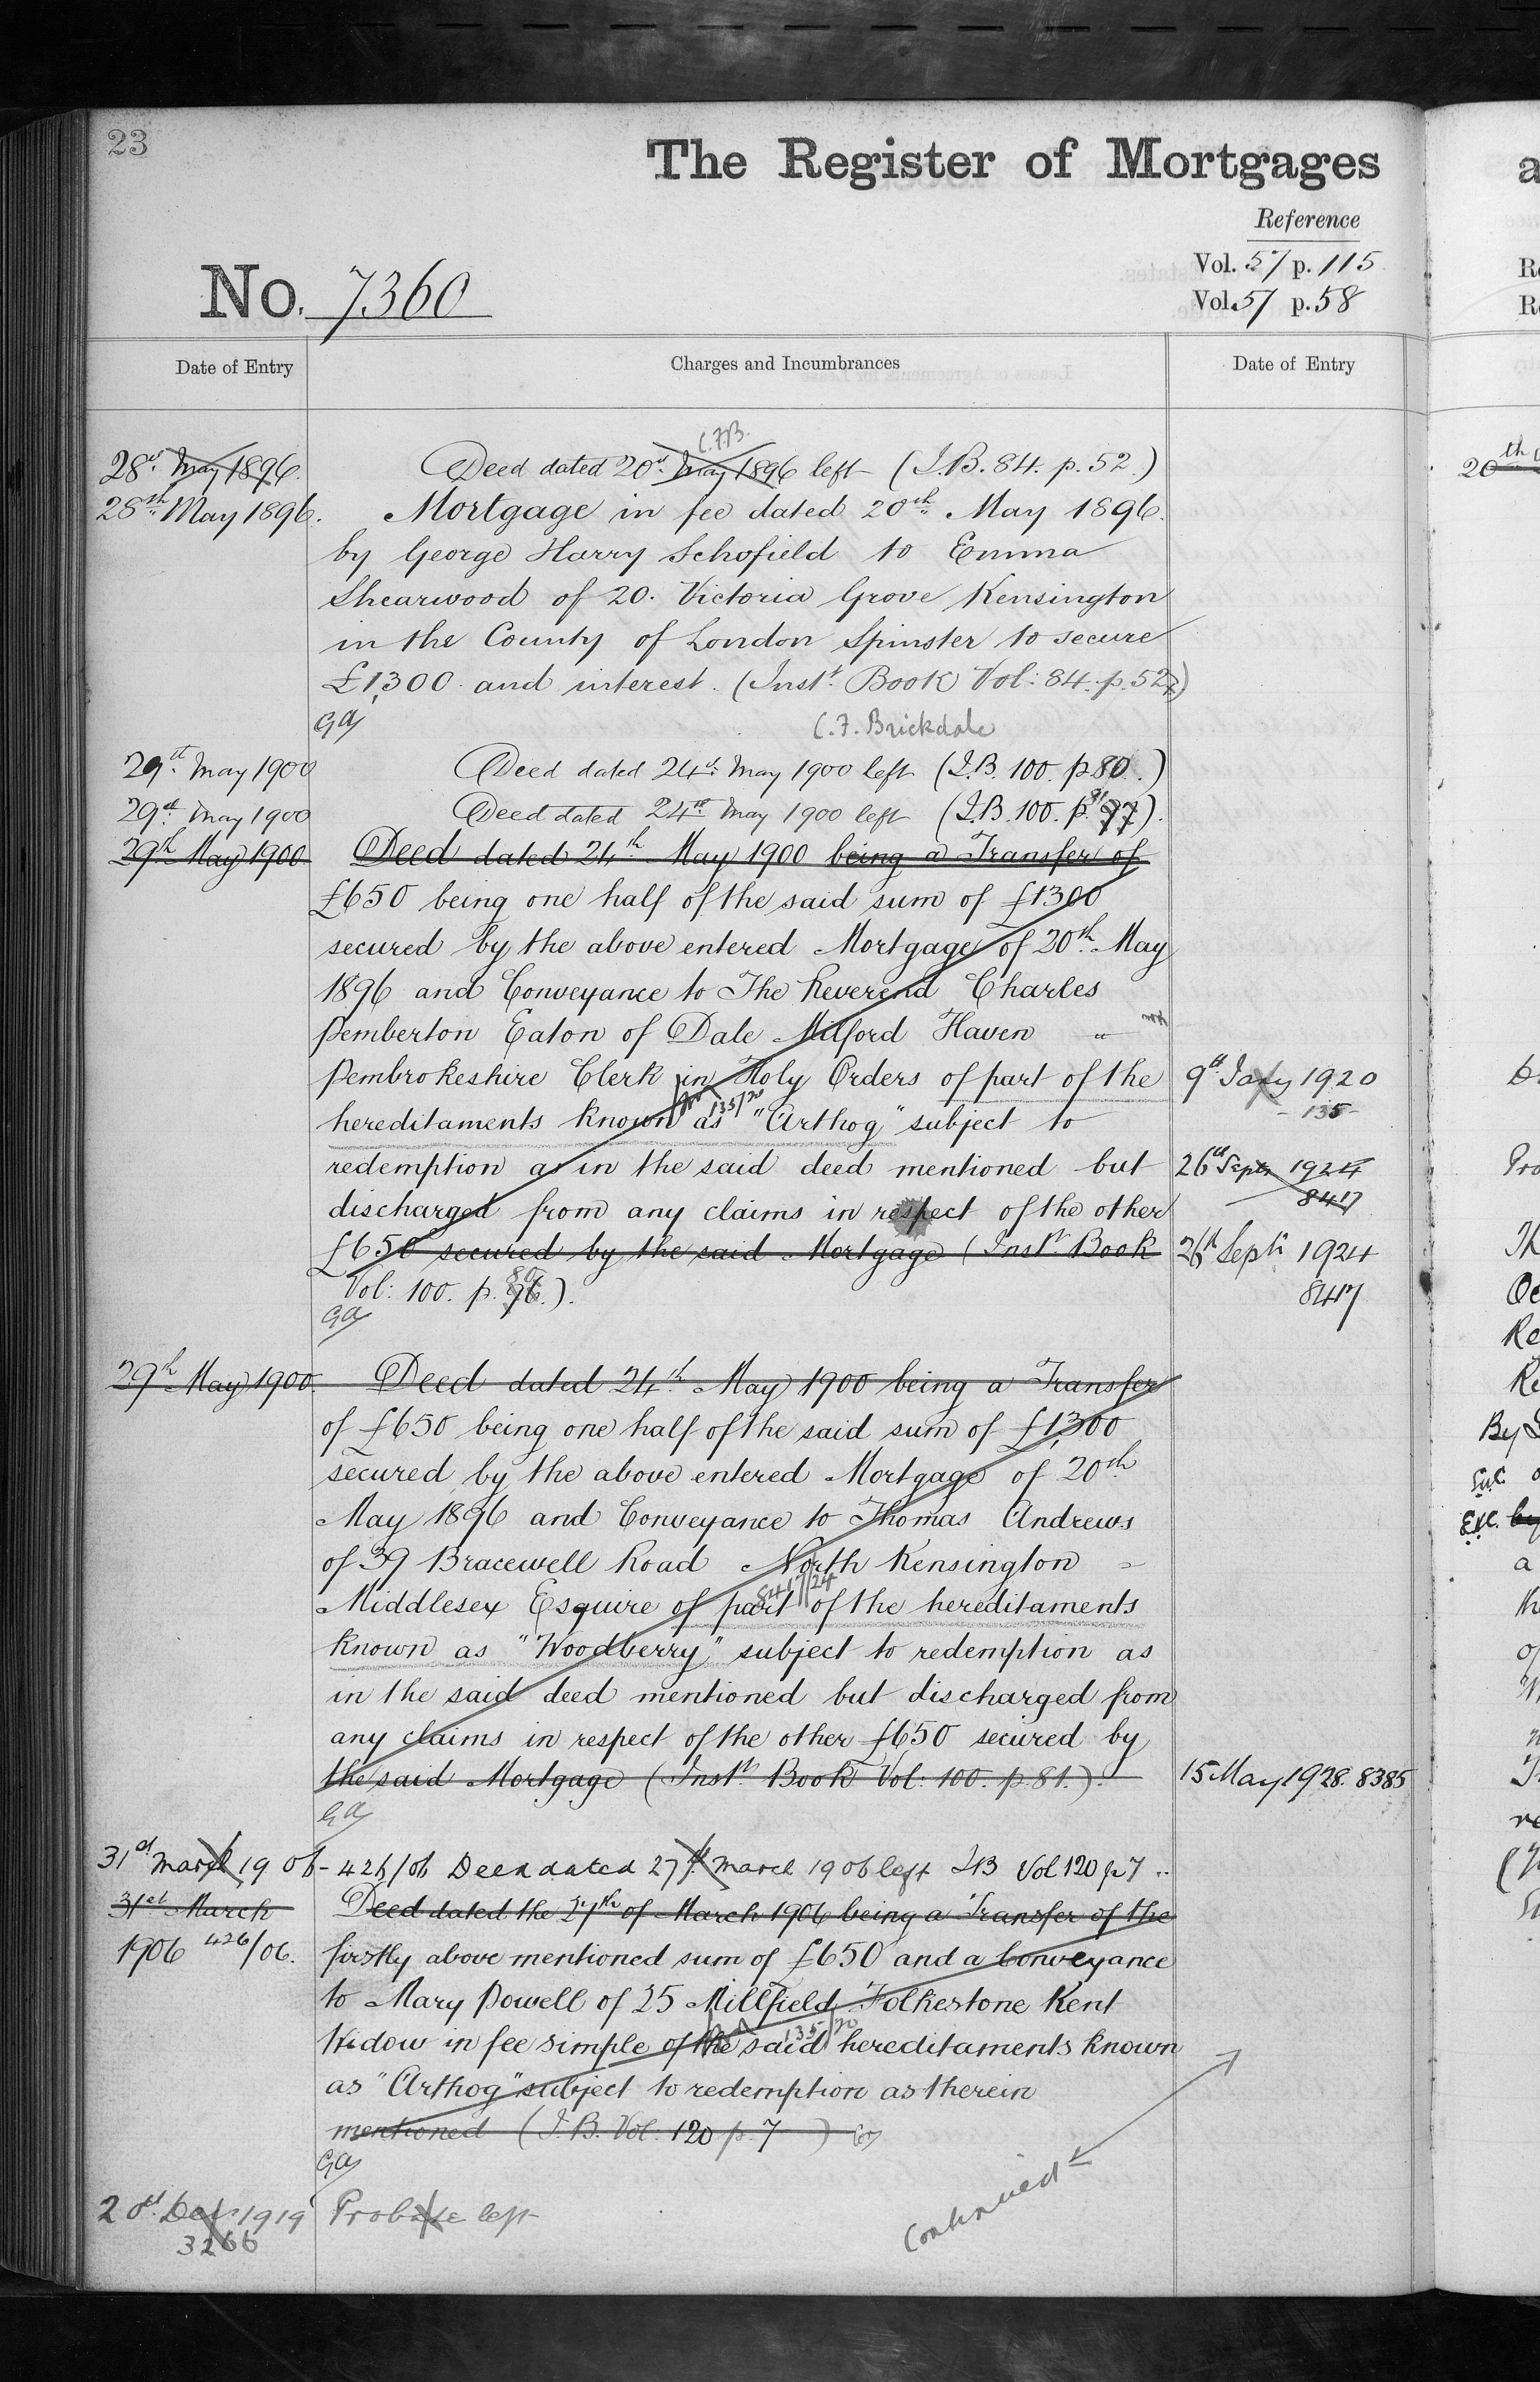 23
The Register of Mortgages
Reference
Vol. 57 p. 115
Vol. 57 p. 58
No. 7360
Date of Entry
Charges and Incumbrances
Date of Entry
C.F.B.
28th May 1896. Deed dated 20th May 1896 left (I.B. 84. p. 52.)
28th May 1896. Mortgage in fee dated 20th May 1896.
by George Harry Schofield to Emma
Shearwood of 20. Victoria Grove Kensington
in the County of London Spinster to secure
£1,300 and interest. (Inst. Book Vol: 84. p. 52.)
GA
C. F. Brickdale
29th May 1900 Deed dated 24th May 1900 left (I.B. 100. p 80.)
29th May 1900 Deed dated 24th May 1900 left (I.B. 100. p. 81 97).
29th May 1900 Deed dated 24th May 1900 being a Transfer of
£650 being one half of the said sum of £1300
secured by the above entered Mortgage of 20th May
1896 and Conveyance to The Reverend Charles
Pemberton Eaton of Dale Milford Haven
Pembrokeshire Clerk in Holy Orders of part of the
135/20
hereditaments known as "Arthog" subject to
redemption as in the said deed mentioned but
discharged from any claims in respect of the other
£650 secured by the said Mortgage (Inst. Book
Vol: 100. p. 80 96.).
GA
9th Jany 1920
135
26th Septr 1924
8417
26th Septr 1924
8417
29th May 1900. Deed dated 24th May 1900 being a Transfer
of £650 being one half of the said sum of £1,300
secured by the above entered Mortgage of 20th
May 1896 and Conveyance to Thomas Andrews
of 39 Bracewell Road North Kensington
8417/24
Middlesex Esquire of part of the hereditaments
known as "Woodberry" subject to redemption as
in the said deed mentioned but discharged from
any claims in respect of the other £650 secured by
the said Mortgage (Inst. Book Vol: 100. p. 81.).
GA
15 May 1928. 8385
31st March 1906 - 426/06 Deed dated 27th March 1906 left IB Vol 120 p 7
31st March Deed dated the 27th of March 1906 being a Transfer of the
1906 426/06. firstly above mentioned sum of £650 and a Conveyance
to Mary Powell of 25 Millfield Folkestone Kent
135/20
Widow in fee simple of the said hereditaments known
as "Arthog" subject to redemption as therein
mentioned (I.B. Vol: 120 p. 7)
GA
20th Decr 1919 Probate left
3266
Continued